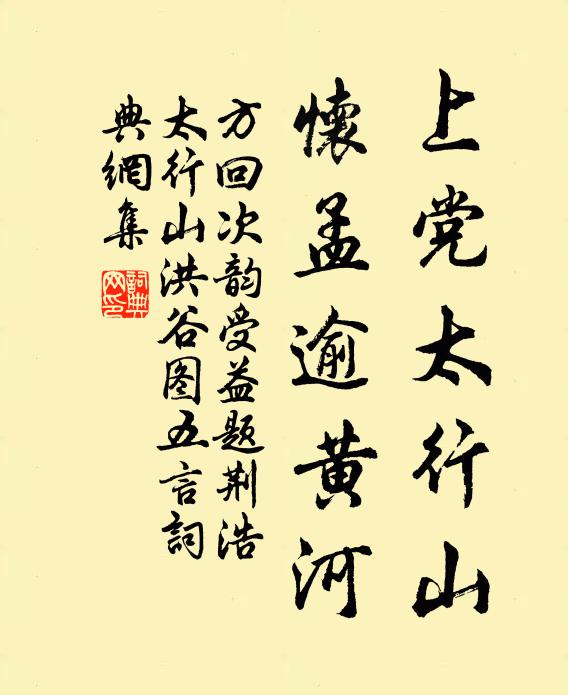 上党太行山
懷孟逾黄河
方回次韵受益题荆浩
太行山洪谷图五言詞
典網集
詞典
网印